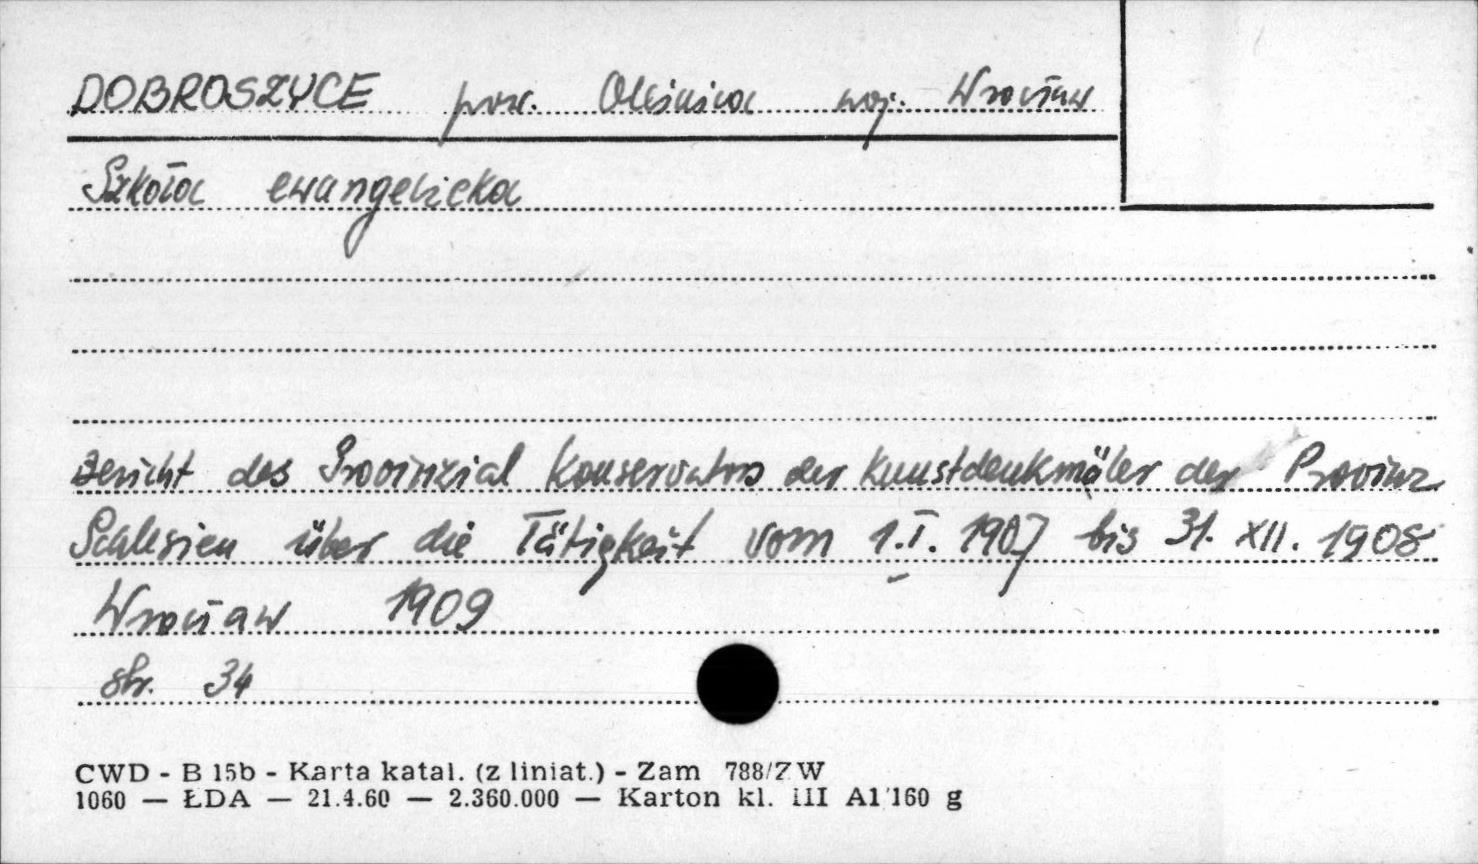 DOBROSZYCE pow. Oleśnica woj. Wrocław
Szkoła ewangelicka
Bericht des Provinzial Konservators der Kunstdenkmäler der Provinz
Schlesien über die Tätigkeit vom 1.I. 1907 bis 31. XII. 1908
Wrocław 1909
str. 34
CWD - B 15b - Karta katal. (z liniat.) - Zam 788/ZW
1060 — ŁDA — 21.4.60 — 2.360.000 — Karton kl. III A1/160 g